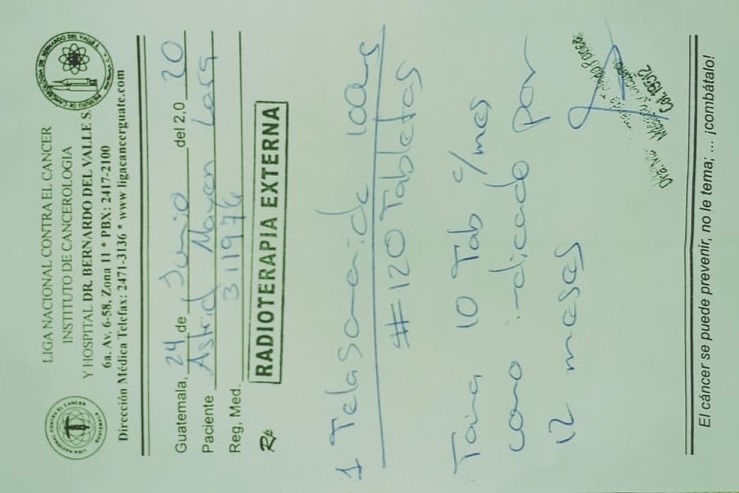 LIGA NACIONAL CONTRA EL CANCER
INSTITUTO DE CANCEROLOGIA
Y HOSPITAL DR. BERNARDO DEL VALLE S.
6a. Av. 6-58, Zona 11 * PBX: 2417-2100
Dirección Médica Telefax: 2471-3136 * www.ligacancerguate.com
Guatemala, 24 de Junio del 2,0 20
Paciente Astrid Mayen
Reg. Med. 311976
RADIOTERAPIA EXTERNA
1
#120 Tabletas
Toma 10 Tab c/mes
como indicado por
12 meses
Col. 19512
El cáncer se puede prevenir, no le tema; ... ¡combátalo!